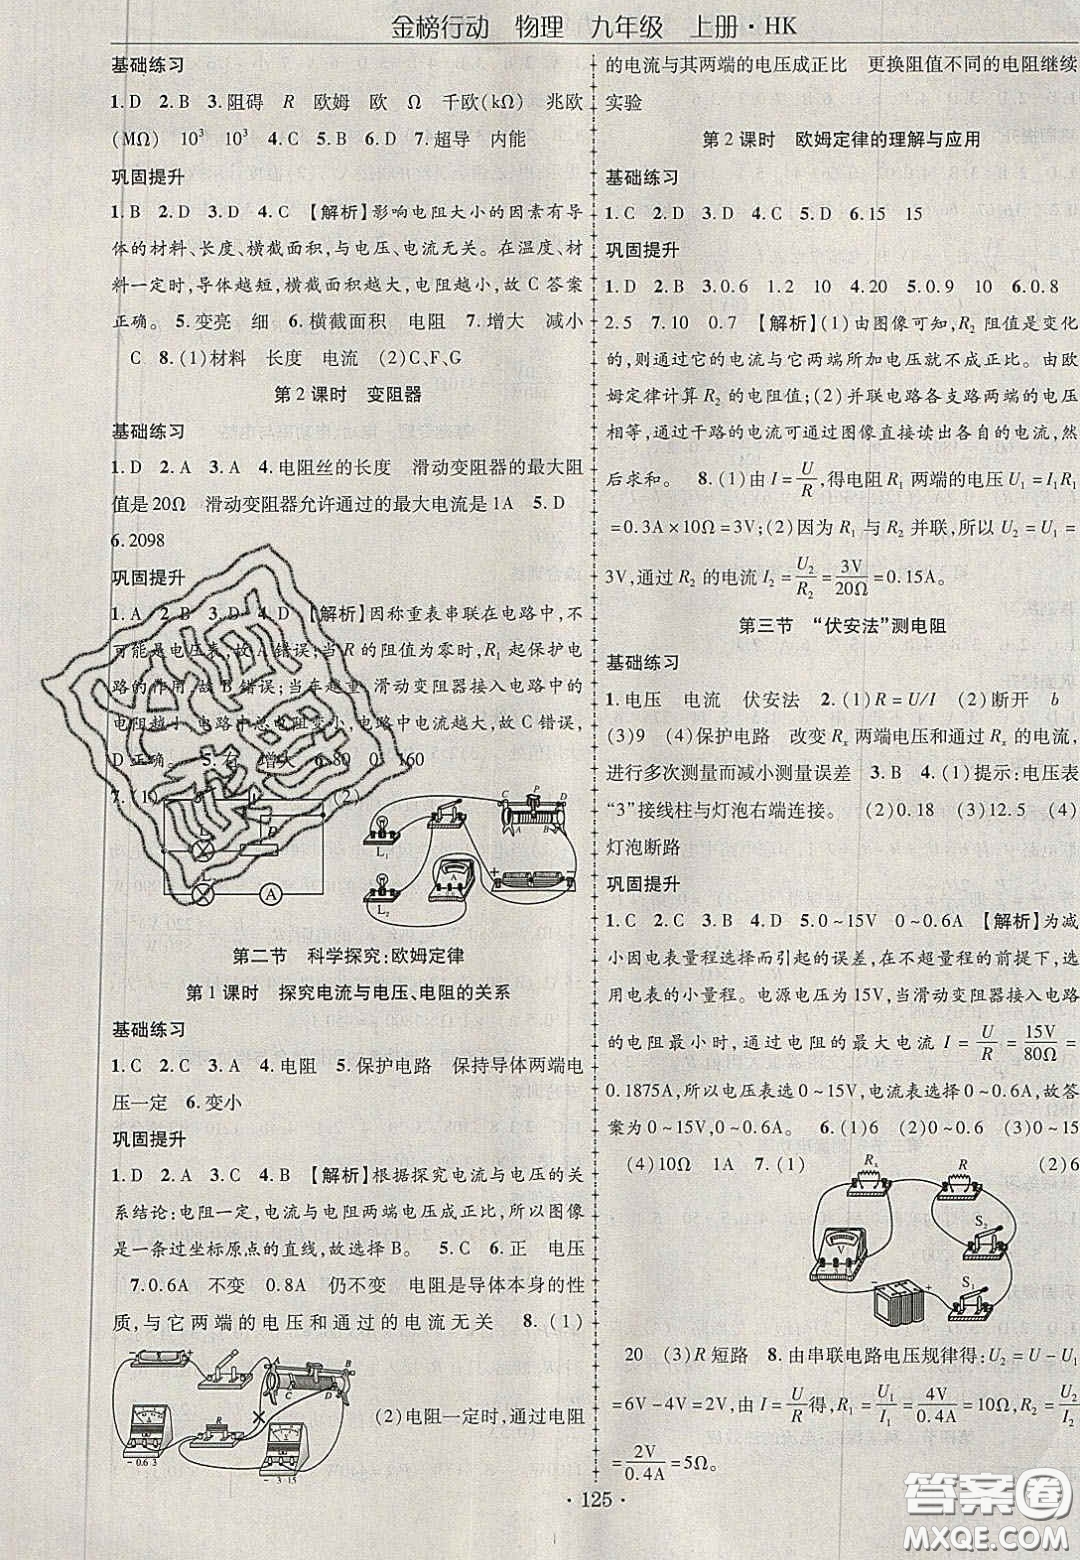 金榜行动 物理 九年级 上册·HK
基础练习
1.D 2.B 3.阻碍 R 欧姆 欧 Ω 千欧(kΩ) 兆欧
(MΩ) 10³ 10³ 4.C 5.B 6.D 7.超导 内能
巩固提升
1.B 2.D 3.D 4.C 【解析】影响电阻大小的因素有导
体的材料、长度、横截面积,与电压、电流无关。在温度、材
料一定时,导体越短,横截面积越大,电阻越小,故 C 答案
正确。 5.变亮 细 6.横截面积 电阻 7.增大 减小
C 8.(1)材料 长度 电流 (2)C、F、G
第 2 课时 变阻器
基础练习
1.D 2.A 3.A 4.电阻丝的长度 滑动变阻器的最大阻
值是20Ω 滑动变阻器允许通过的最大电流是1A 5.D
6.2098
巩固提升
1.A 2.B 3.D 4.D 【解析】因称重表串联在电路中,不
可能是电压表,故A错误;当R的阻值为零时,R₁起保护电
路的作用,故B错误;当车越重,滑动变阻器接入电路中的
电阻越小,电路中总电阻变小,电路中电流越大,故C错误,
D正确。 5.右 增大 6.80 0 160
7.(1) (2)
L₁ L₂ A C P D A B
第二节 科学探究:欧姆定律
第 1 课时 探究电流与电压、电阻的关系
基础练习
1.C 2.C 3.A 4.电阻 5.保护电路 保持导体两端电
压一定 6.变小
巩固提升
1.D 2.A 3.C 4.B 【解析】根据探究电流与电压的关
系结论:电阻一定,电流与电阻两端电压成正比,所以图像
是一条过坐标原点的直线,故选择B。 5.C 6.正 电压
7.0.6A 不变 0.8A 仍不变 电阻是导体本身的性
质,与它两端的电压和通过的电流无关 8.(1)
(2)电阻一定时,通过电阻
的电流与其两端的电压成正比 更换阻值不同的电阻继续
实验
第 2 课时 欧姆定律的理解与应用
基础练习
1.C 2.C 3.D 4.C 5.D 6.15 15
巩固提升
1.D 2.D 3.0.6 1.2 10 4.20 5.0.9 10 6.0.8
2.5 7.10 0.7 【解析】(1)由图像可知,R₂阻值是变化
的,则通过它的电流与它两端所加电压就不成正比。由欧
姆定律计算R₂的电阻值;(2)并联电路各支路两端的电压
相等,通过干路的电流可通过图像直接读出各自的电流,然
后求和。 8.(1)由I=U/R,得电阻R₁两端的电压U₁=I₁R₁
=0.3A×10Ω=3V;(2)因为R₁与R₂并联,所以U₂=U₁=
3V,通过R₂的电流I₂=U₂/R₂=3V/20Ω=0.15A。
第三节 “伏安法”测电阻
基础练习
1.电压 电流 伏安法 2.(1)R=U/I (2)断开 b
(3)9 (4)保护电路 改变Rₓ两端电压和通过Rₓ的电流,
进行多次测量而减小测量误差 3.B 4.(1)提示:电压表
“3”接线柱与灯泡右端连接。 (2)0.18 (3)12.5 (4)
灯泡断路
巩固提升
1.C 2.C 3.B 4.D 5.0~15V 0~0.6A 【解析】为减
小因电表量程选择而引起的误差,在不超量程的前提下,选
用电表的小量程。电源电压为15V,当滑动变阻器接入电路
的电阻最小时,通过电阻的最大电流I=U/R=15V/80Ω=
0.1875A,所以电压表选0~15V,电流表选择0~0.6A,故答
案为0~15V;0~0.6A。 6.(1)6 (2)0~0.6 (3)0.6
(4)10Ω 1A 7.(1) (2)6
Rₓ R S₂ S₁ V
20 (3)R 短路 8.由串联电路电压规律得:U₂=U-U₁
=6V-4V=2V,由I=U/R得,R₁=U₁/I₁=4V/0.4A=10Ω,R₂=U₂/I₂
=2V/0.4A=5Ω。
·125·
答案圈
MXQE.COM